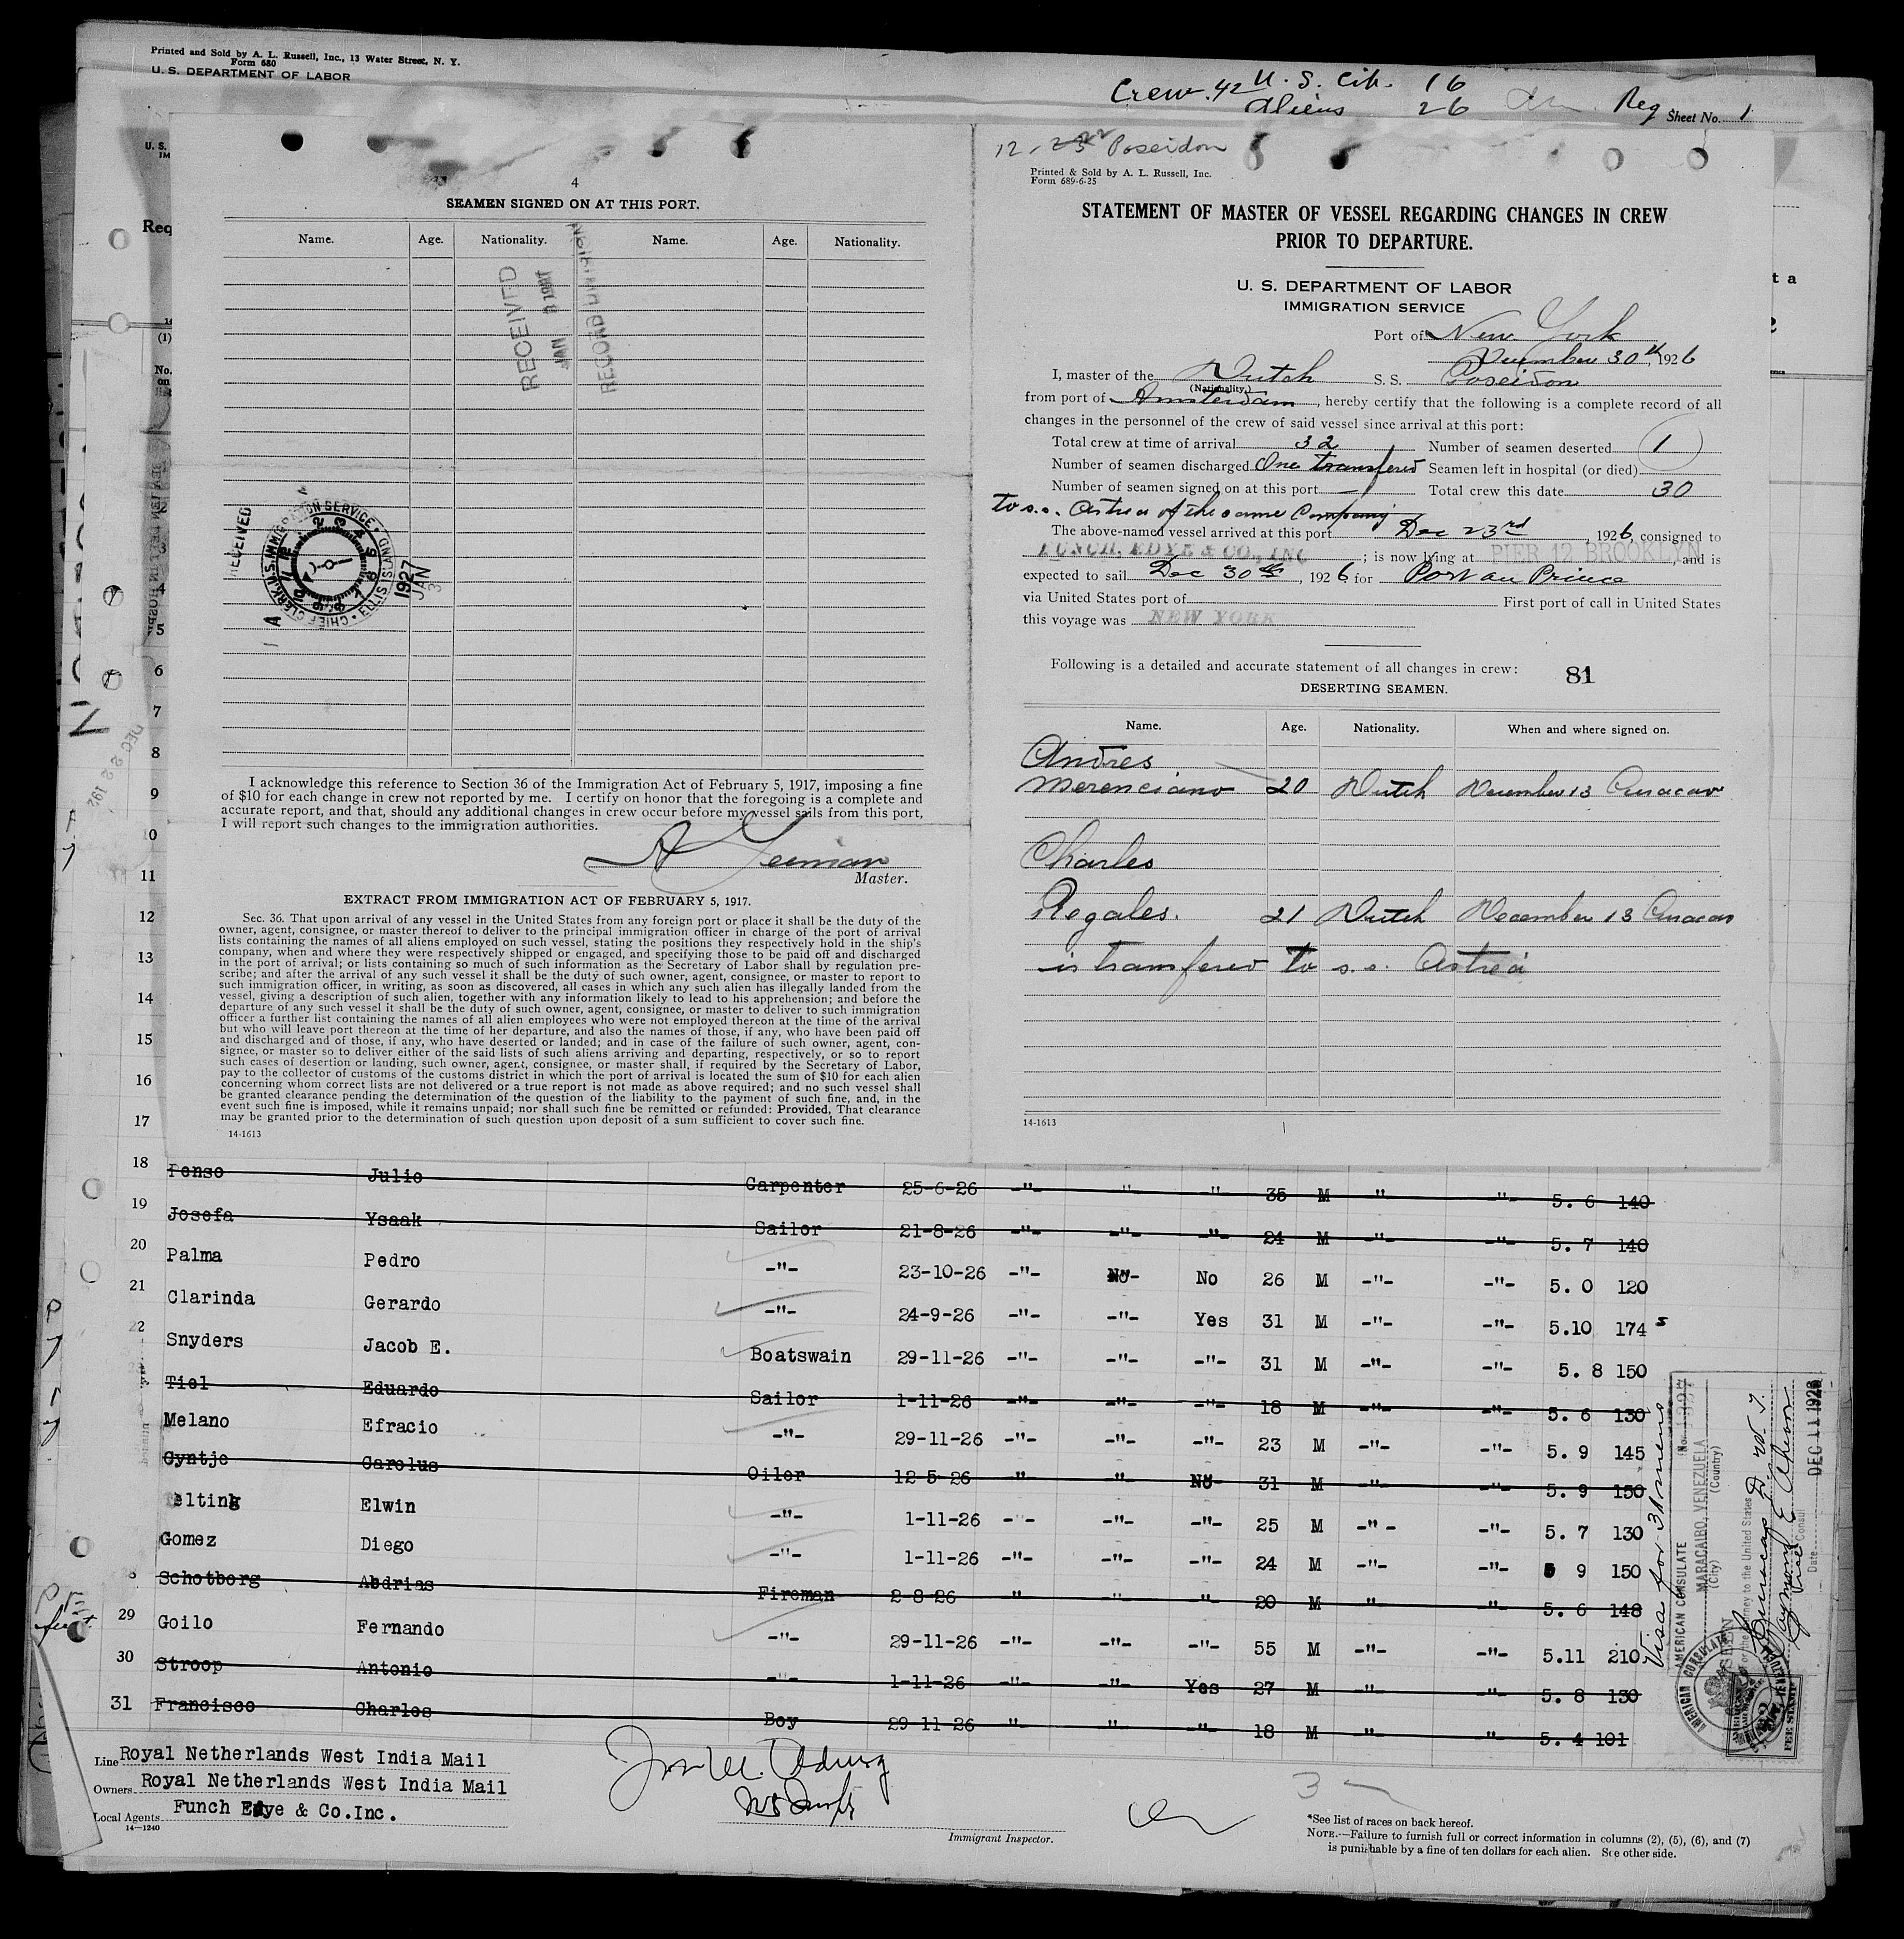 Printed and Sold by A. L. Russell, Inc., 13 Water Street, N. Y.
Form 680
U. S. DEPARTMENT OF LABOR
Crew. 42 U. S. Cit. 16
Aliens 26
Reg Sheet No. 1
U. S.
IM
Req
(1)
No.
on
4
SEAMEN SIGNED ON AT THIS PORT.
Name. Age. Nationality. Name. Age. Nationality.
RECEIVED
JAN 1927
RECORD DIVISION
RECEIVED
CHIEF CLERK, U.S. IMMIGRATION SERVICE • ELLIS ISLAND
1927
JAN
3
A
5
6
7
8
9
10
11
12
13
14
15
16
17
I acknowledge this reference to Section 36 of the Immigration Act of February 5, 1917, imposing a fine
of $10 for each change in crew not reported by me. I certify on honor that the foregoing is a complete and
accurate report, and that, should any additional changes in crew occur before my vessel sails from this port,
I will report such changes to the immigration authorities.
Master.
EXTRACT FROM IMMIGRATION ACT OF FEBRUARY 5, 1917.
Sec. 36. That upon arrival of any vessel in the United States from any foreign port or place it shall be the duty of the
owner, agent, consignee, or master thereof to deliver to the principal immigration officer in charge of the port of arrival
lists containing the names of all aliens employed on such vessel, stating the positions they respectively hold in the ship's
company, when and where they were respectively shipped or engaged, and specifying those to be paid off and discharged
in the port of arrival; or lists containing so much of such information as the Secretary of Labor shall by regulation pre-
scribe; and after the arrival of any such vessel it shall be the duty of such owner, agent, consignee, or master to report to
such immigration officer, in writing, as soon as discovered, all cases in which any such alien has illegally landed from the
vessel, giving a description of such alien, together with any information likely to lead to his apprehension; and before the
departure of any such vessel it shall be the duty of such owner, agent, consignee, or master to deliver to such immigration
officer a further list containing the names of all alien employees who were not employed thereon at the time of the arrival
but who will leave port thereon at the time of her departure, and also the names of those, if any, who have been paid off
and discharged and of those, if any, who have deserted or landed; and in case of the failure of such owner, agent, con-
signee, or master so to deliver either of the said lists of such aliens arriving and departing, respectively, or so to report
such cases of desertion or landing, such owner, agent, consignee, or master shall, if required by the Secretary of Labor,
pay to the collector of customs of the customs district in which the port of arrival is located the sum of $10 for each alien
concerning whom correct lists are not delivered or a true report is not made as above required; and no such vessel shall
be granted clearance pending the determination of the question of the liability to the payment of such fine, and, in the
event such fine is imposed, while it remains unpaid; nor shall such fine be remitted or refunded: Provided, That clearance
may be granted prior to the determination of such question upon deposit of a sum sufficient to cover such fine.
14-1613
12. 22 Poseidon
Printed & Sold by A. L. Russell, Inc.
Form 689-6-25
STATEMENT OF MASTER OF VESSEL REGARDING CHANGES IN CREW
PRIOR TO DEPARTURE.
U. S. DEPARTMENT OF LABOR
IMMIGRATION SERVICE
Port of New York
December 30th, 1926
I, master of the Dutch S. S. Poseidon
(Nationality.)
from port of Amsterdam, hereby certify that the following is a complete record of all
changes in the personnel of the crew of said vessel since arrival at this port:
Total crew at time of arrival 32 Number of seamen deserted 1
Number of seamen discharged One transfered Seamen left in hospital (or died)
Number of seamen signed on at this port — Total crew this date 30
to s.s. Astrea of the same Company
The above-named vessel arrived at this port Dec 23rd, 1926, consigned to
FUNCH, EDYE & CO., INC; is now lying at PIER 12 BROOKLYN, and is
expected to sail Dec 30th, 1926 for Port au Prince
via United States port of First port of call in United States
this voyage was NEW YORK
Following is a detailed and accurate statement of all changes in crew: 81
DESERTING SEAMEN.
Name. Age. Nationality. When and where signed on.
Andres
Merenciano 20 Dutch December 13 Curacao
Charles
Regales. 21 Dutch December 13 Curacao
is transfered to s.s. Astrea
14-1613
18 Penso Julio Carpenter 25-6-26 -"- -"- -"- 35 M -"- -"- 5. 6 140
19 Josefa Ysaak Sailor 21-8-26 -"- -"- -"- 24 M -"- -"- 5. 7 140
20 Palma Pedro -"- 23-10-26 -"- No No 26 M -"- -"- 5. 0 120
21 Clarinda Gerardo -"- 24-9-26 -"- -"- Yes 31 M -"- -"- 5.10 174 s
22 Snyders Jacob E. Boatswain 29-11-26 -"- -"- -"- 31 M -"- -"- 5. 8 150
Tiel Eduardo Sailor 1-11-26 -"- -"- -"- 18 M -"- -"- 5. 6 130
Melano Efracio -"- 29-11-26 -"- -"- -"- 23 M -"- -"- 5. 9 145
Cyntje Carolus Oiler 12-5-26 -"- -"- No 31 M -"- -"- 5. 9 150
Telting Elwin -"- 1-11-26 -"- -"- -"- 25 M -"- -"- 5. 7 130
Gomez Diego -"- 1-11-26 -"- -"- -"- 24 M -"- -"- 5 9 150
Schotborg Abdrias Fireman 2-8-26 -"- -"- -"- 20 M -"- -"- 5. 6 148
29 Goilo Fernando -"- 29-11-26 -"- -"- -"- 55 M -"- -"- 5.11 210
30 Stroop Antonio -"- 1-11-26 -"- -"- Yes 27 M -"- -"- 5. 8 130
31 Francisco Charles Boy 29-11-26 -"- -"- -"- 18 M -"- -"- 5. 4 101
Visa for 31 mens
AMERICAN CONSULATE
MARACAIBO, VENEZUELA
(City) (Country)
SEEN
For the journey to the United States
Curacao, D.W.I.
Vice Consul
Date DEC 11 1926
AMERICAN CONSULATE
FEE STAMP
Line Royal Netherlands West India Mail
Owners Royal Netherlands West India Mail
Local Agents Funch Edye & Co.Inc.
14—1240
Immigrant Inspector.
*See list of races on back hereof.
NOTE.—Failure to furnish full or correct information in columns (2), (5), (6), and (7)
is punishable by a fine of ten dollars for each alien. See other side.